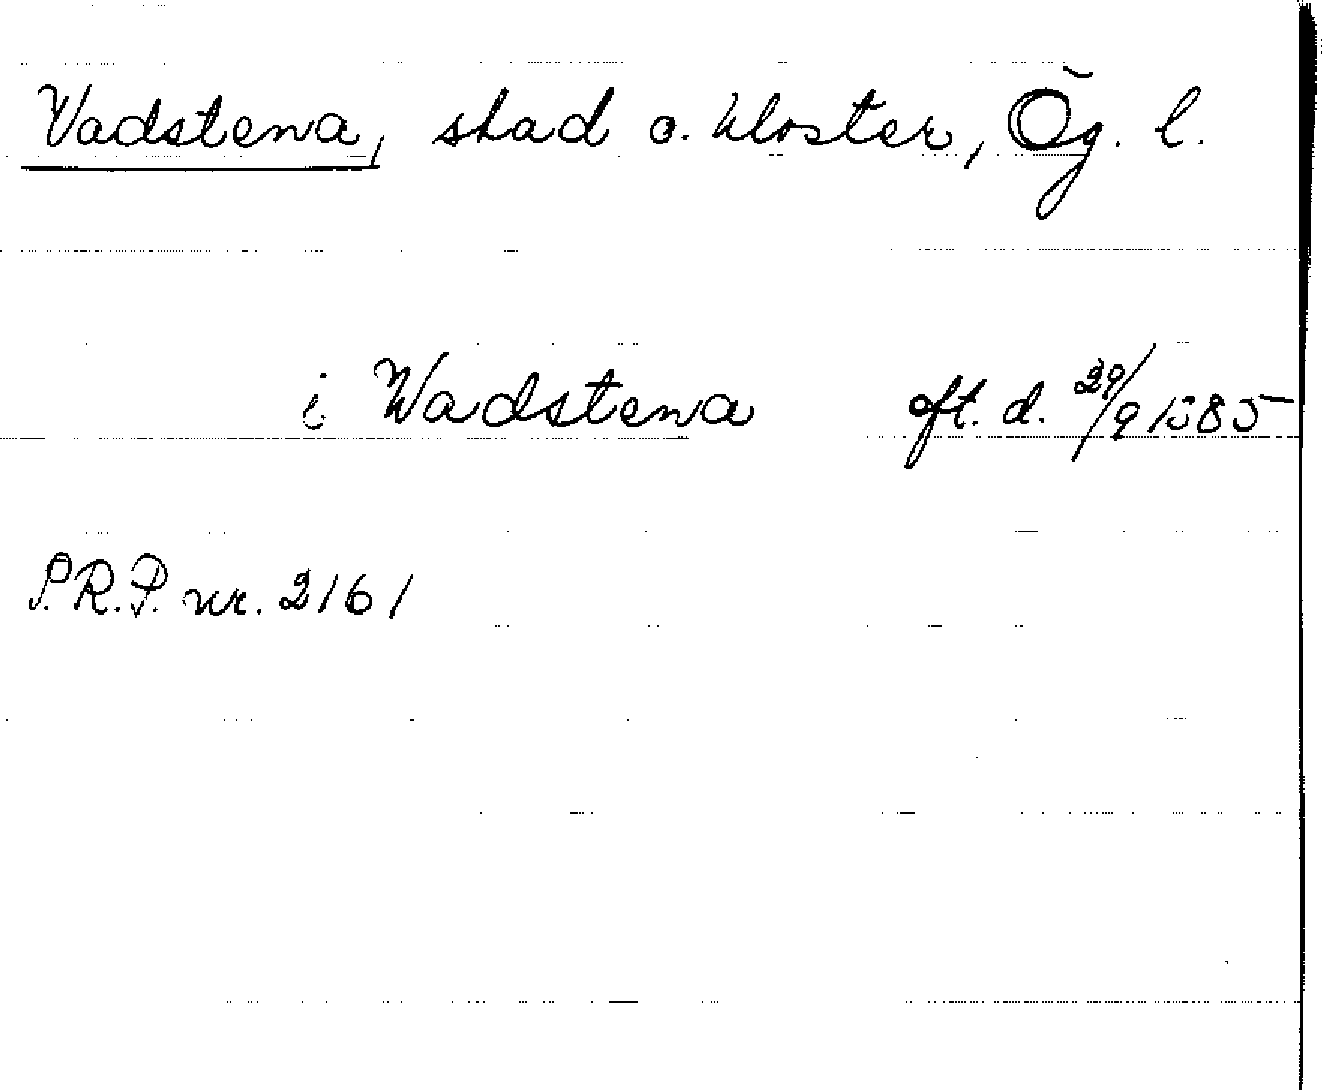 Vadstena, stad o. kloster, Ög. l.
i Wadstena oft. d. 29/9 1585
S.R.P. nr. 2161